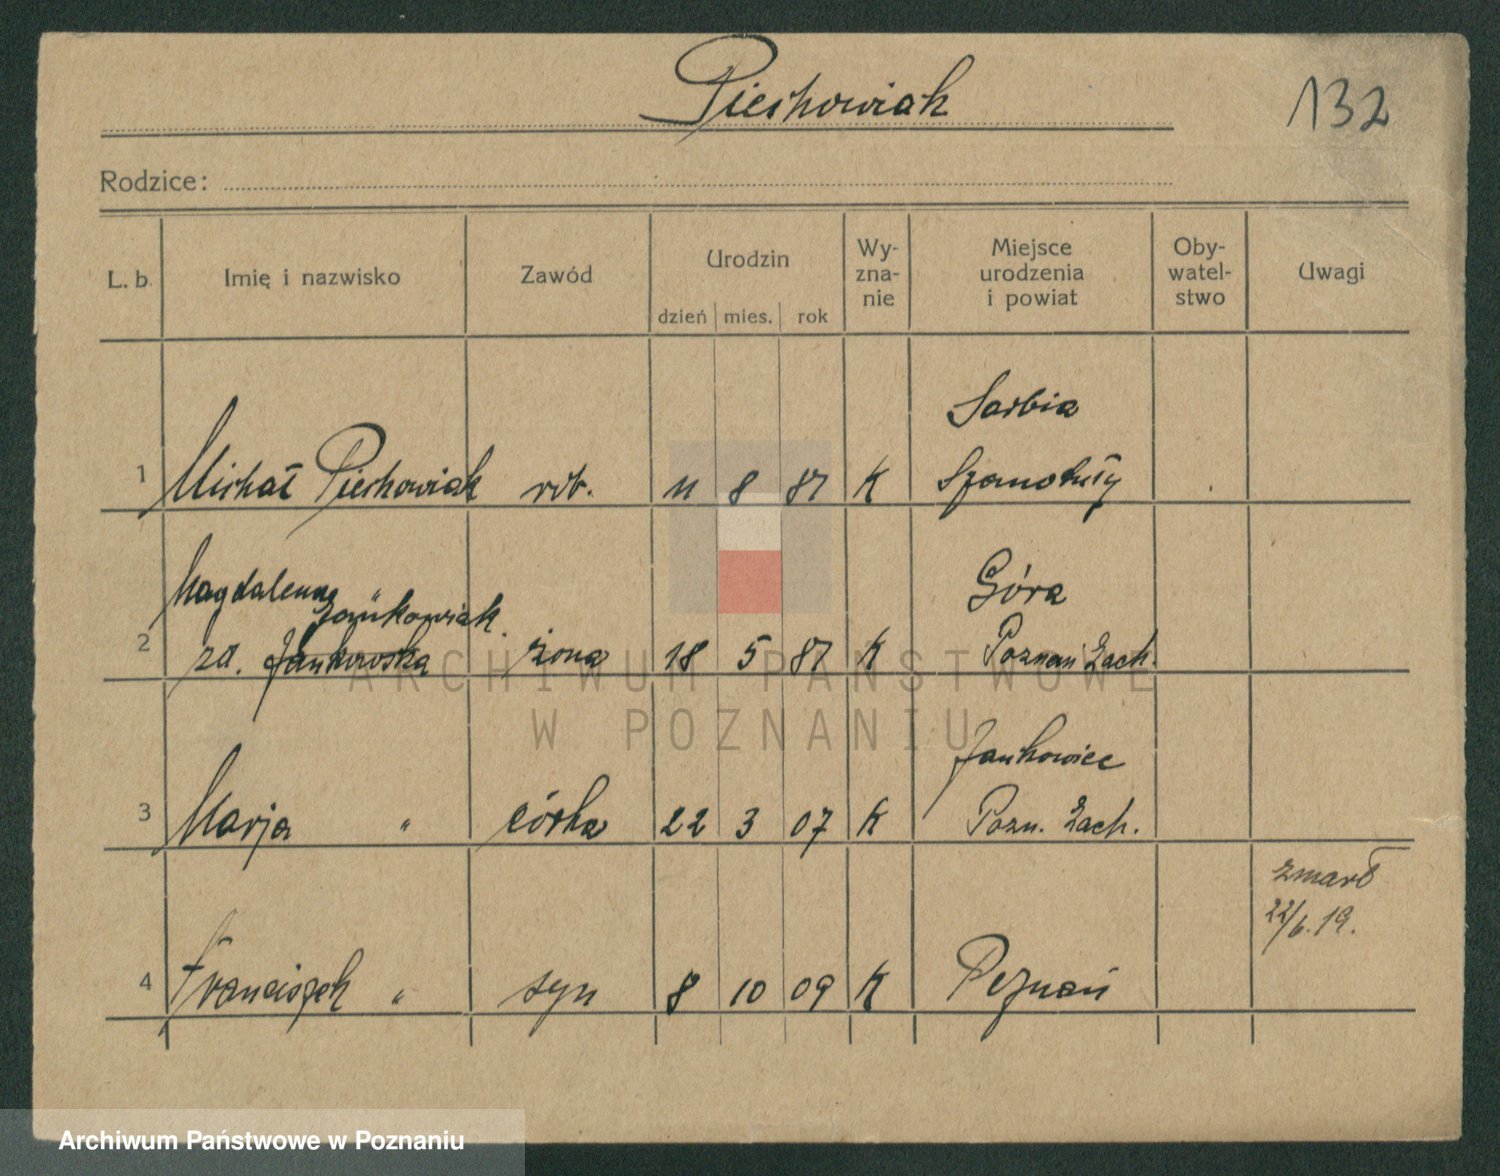 Piechowiak
132
Rodzice:
L. b. Imię i nazwisko Zawód Urodzin dzień mies. rok Wy-zna-nie Miejsce urodzenia i powiat Oby-watel-stwo Uwagi
Sarbia
1 Michał Piechowiak rob. 11 8 87 K Szamotuły
Magdalena Jankowiak Góra
2 zd. Jankowska żona 18 5 87 K Poznań Zach.
Jankowice
3 Marja " córka 22 3 07 K Pozn. Zach.
zmarł
22/6. 19.
4 Franciszek " syn 8 10 09 K Poznań
ARCHIWUM PAŃSTWOWE
W POZNANIU
Archiwum Państwowe w Poznaniu